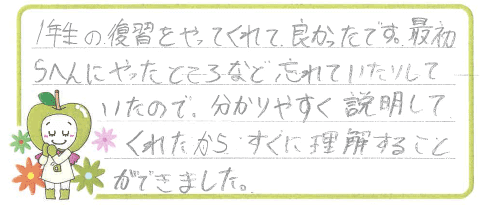 1年生の復習をやってくれて良かったです。最初
らへんにやったところなど忘れていたりして
いたので、分かりやすく説明して
くれたから すぐに理解すること
ができました。